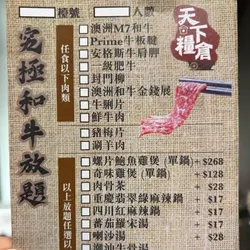 檯號 人數
天下糧倉
究極和牛放題
任食以下肉類
澳洲M7和牛
Prime牛板腱
安格斯牛肩胛
一級肥牛
封門柳
澳洲和牛金錢展
牛脷片
鮮牛肉
豬梅片
涮羊肉
以上放題任選以
螺片鮑魚雞煲 (單鍋) +$268
奇味雞煲 (單鍋) +$128
肉骨茶 +$28
重慶翡翠緣麻辣鍋 +$17
四川紅麻辣鍋 +$17
蕃茄薯茸湯 +$17
喇沙湯 +$28